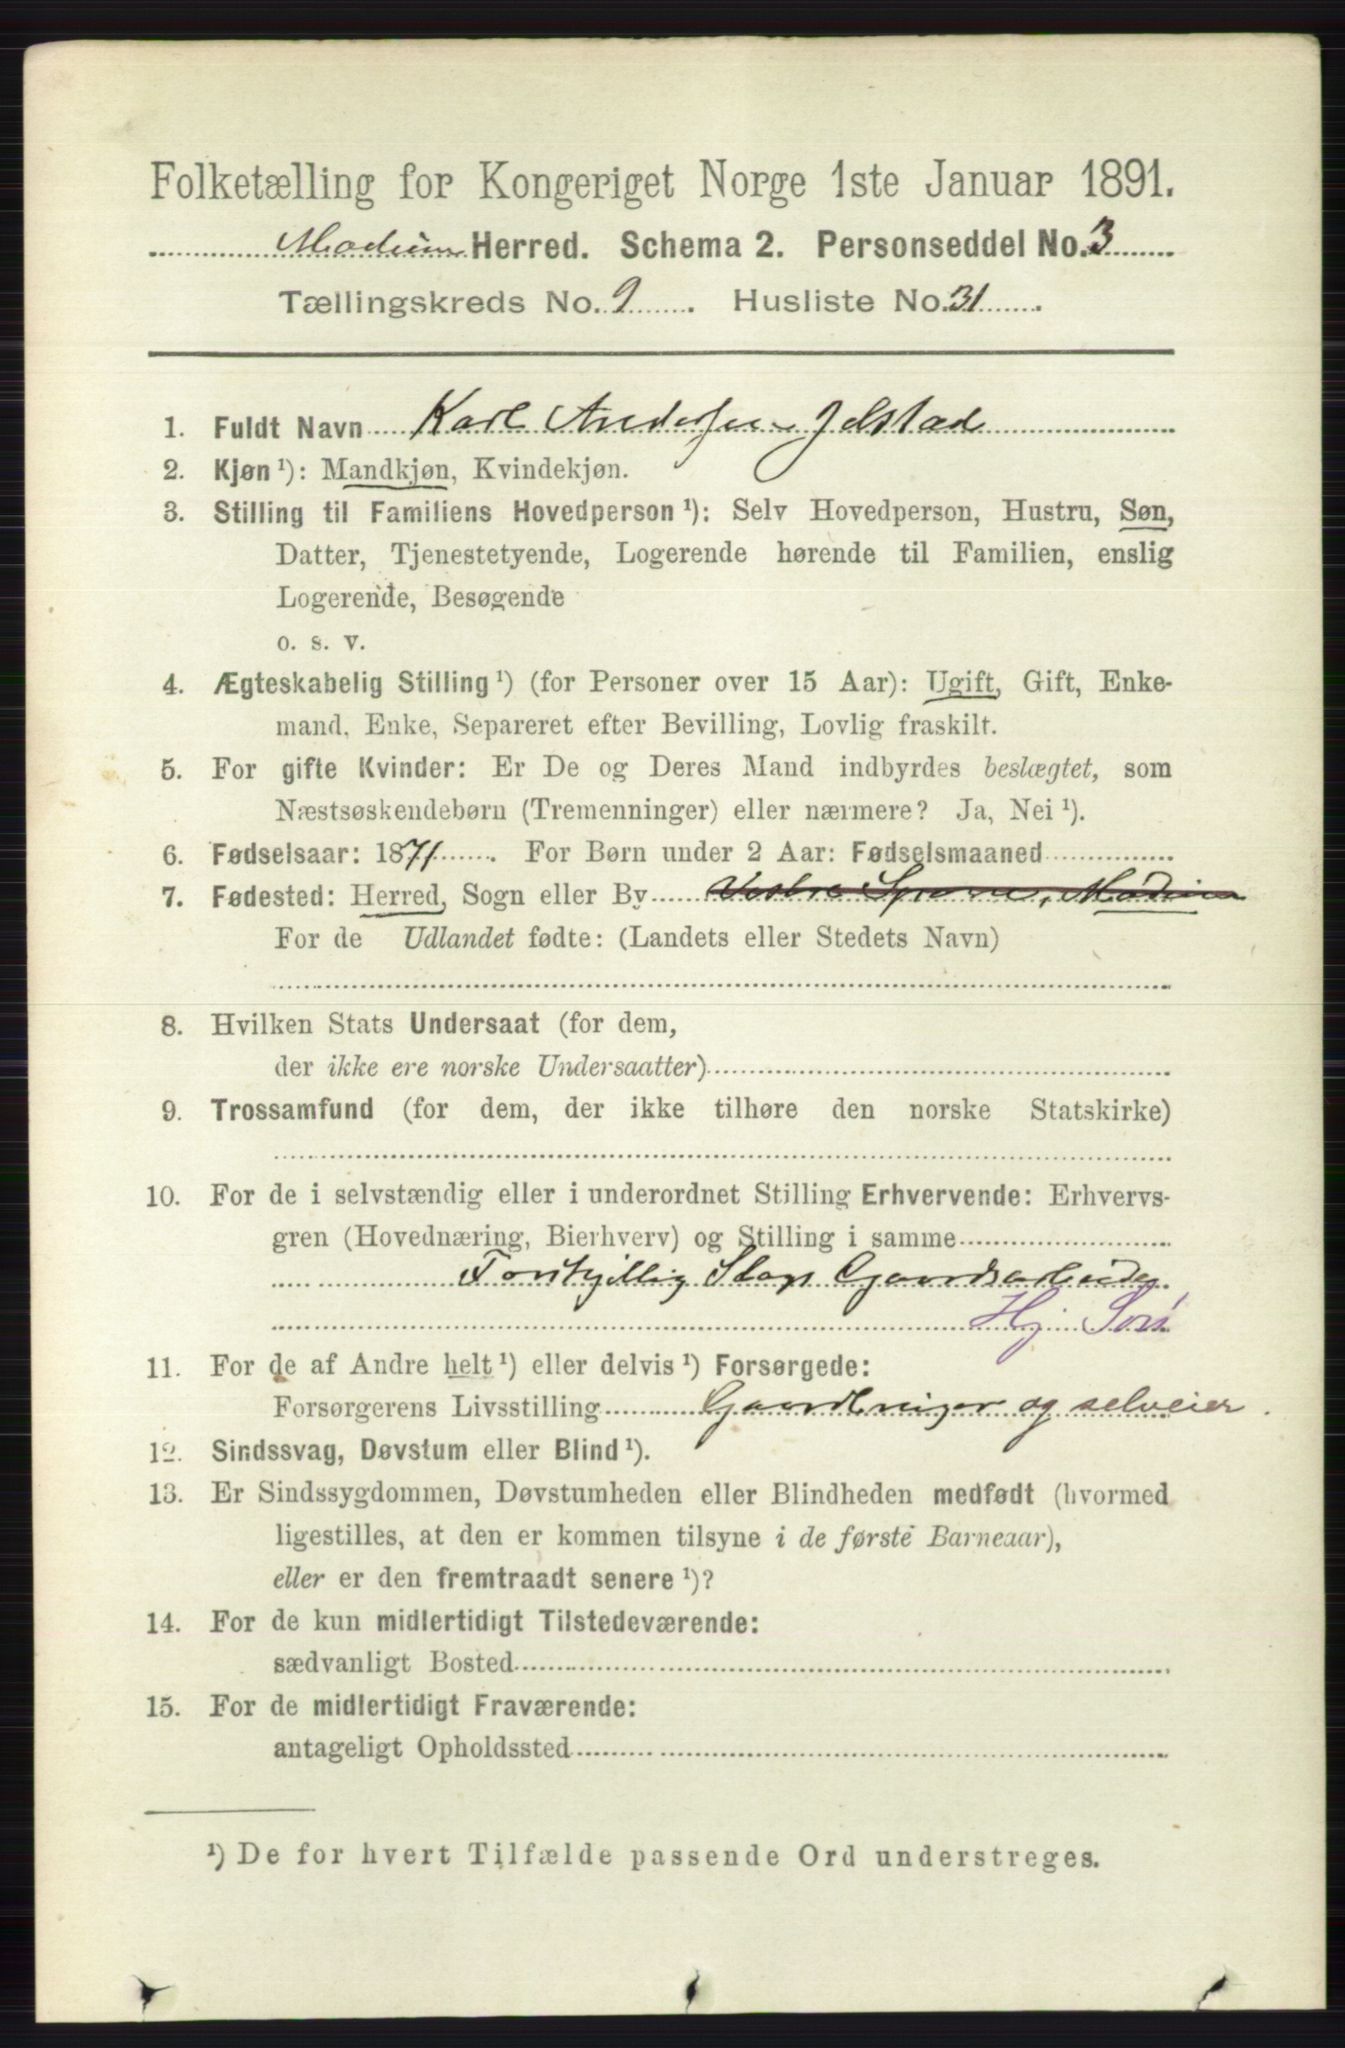 Folketælling for Kongeriget Norge 1ste Januar 1891.
Modum Herred. Schema 2. Personseddel No. 3
Tællingskreds No. 9. Husliste No. 31.
1. Fuldt Navn Karl Andersen Jelstad
2. Kjøn ¹): Mandkjøn, Kvindekjøn.
3. Stilling til Familiens Hovedperson ¹): Selv Hovedperson, Hustru, Søn,
Datter, Tjenestetyende, Logerende hørende til Familien, enslig
Logerende, Besøgende
o. s. v.
4. Ægteskabelig Stilling ¹) (for Personer over 15 Aar): Ugift, Gift, Enke-
mand, Enke, Separeret efter Bevilling, Lovlig fraskilt.
5. For gifte Kvinder: Er De og Deres Mand indbyrdes beslægtet, som
Næstsøskendebørn (Tremenninger) eller nærmere? Ja, Nei ¹).
6. Fødselsaar: 1871. For Børn under 2 Aar: Fødselsmaaned
7. Fødested: Herred, Sogn eller By Vestre Spone, Modum
For de Udlandet fødte: (Landets eller Stedets Navn)
8. Hvilken Stats Undersaat (for dem,
der ikke ere norske Undersaatter)
9. Trossamfund (for dem, der ikke tilhøre den norske Statskirke)
10. For de i selvstændig eller i underordnet Stilling Erhvervende: Erhvervs-
gren (Hovednæring, Bierhverv) og Stilling i samme
Forskjellig Slags Gaardsarbeide
Hj. Søn
11. For de af Andre helt ¹) eller delvis ¹) Forsørgede:
Forsørgerens Livsstilling Gaardbruger og selveier.
12. Sindssvag, Døvstum eller Blind ¹).
13. Er Sindssygdommen, Døvstumheden eller Blindheden medfødt (hvormed
ligestilles, at den er kommen tilsyne i de første Barneaar),
eller er den fremtraadt senere ¹)?
14. For de kun midlertidigt Tilstedeværende:
sædvanligt Bosted
15. For de midlertidigt Fraværende:
antageligt Opholdssted
¹) De for hvert Tilfælde passende Ord understreges.